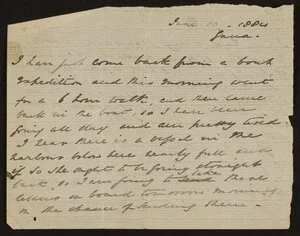 June 10. 1884
Java.
I have just come back from a boat
expedition and this morning went
for a 6 hour walk, and then came
back in the boat, so I have been
going all day and am pretty tired.
I hear there is a vessel in the
harbour below here nearly full and
if so she ought to be going straight
back, so I am going to take these
letters on board tomorrow morning
on the chance of sending them.